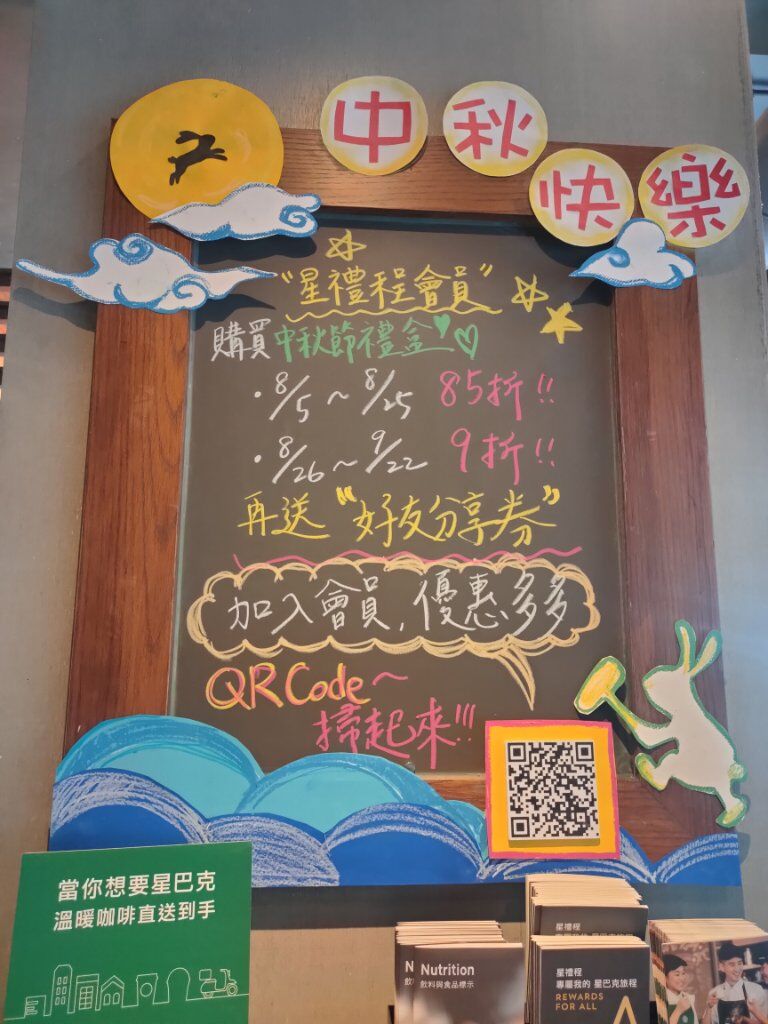 中秋快樂
"星禮程會員"
購買中秋節禮盒
・8/5～8/25 85折!!
・8/26～9/22 9折!!
再送"好友分享券"
加入會員,優惠多多
QR Code～
掃起來!!!
當你想要星巴克
溫暖咖啡直送到手
Nutrition
飲料與食品標示
星禮程
專屬我的 星巴克旅程
星禮程
專屬我的 星巴克旅程
REWARDS
FOR ALL